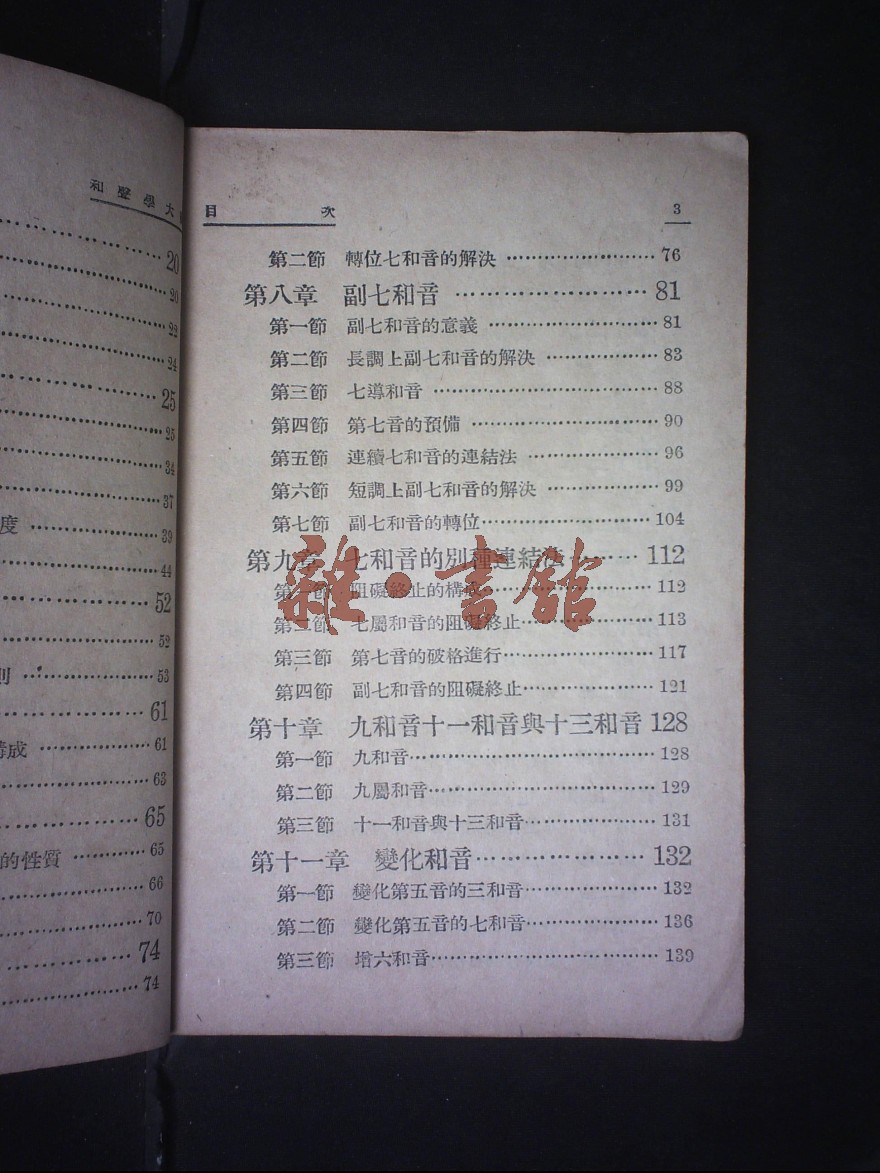 和聲學大
20
20
22
24
25
25
34
37
度 39
44
52
52
則 53
61
構成 61
63
65
的性質 65
66
70
74
74
目次 3
第二節 轉位七和音的解決 76
第八章 副七和音 81
第一節 副七和音的意義 81
第二節 長調上副七和音的解決 83
第三節 七導和音 88
第四節 第七音的預備 90
第五節 連續七和音的連結法 96
第六節 短調上副七和音的解決 99
第七節 副七和音的轉位 104
第九章 七和音的別種連結法 112
第一節 阻礙終止的構成 112
第二節 七屬和音的阻礙終止 113
第三節 第七音的破格進行 117
第四節 副七和音的阻礙終止 121
第十章 九和音十一和音與十三和音 128
第一節 九和音 128
第二節 九屬和音 129
第三節 十一和音與十三和音 131
第十一章 變化和音 132
第一節 變化第五音的三和音 132
第二節 變化第五音的七和音 136
第三節 增六和音 139
雜·書館